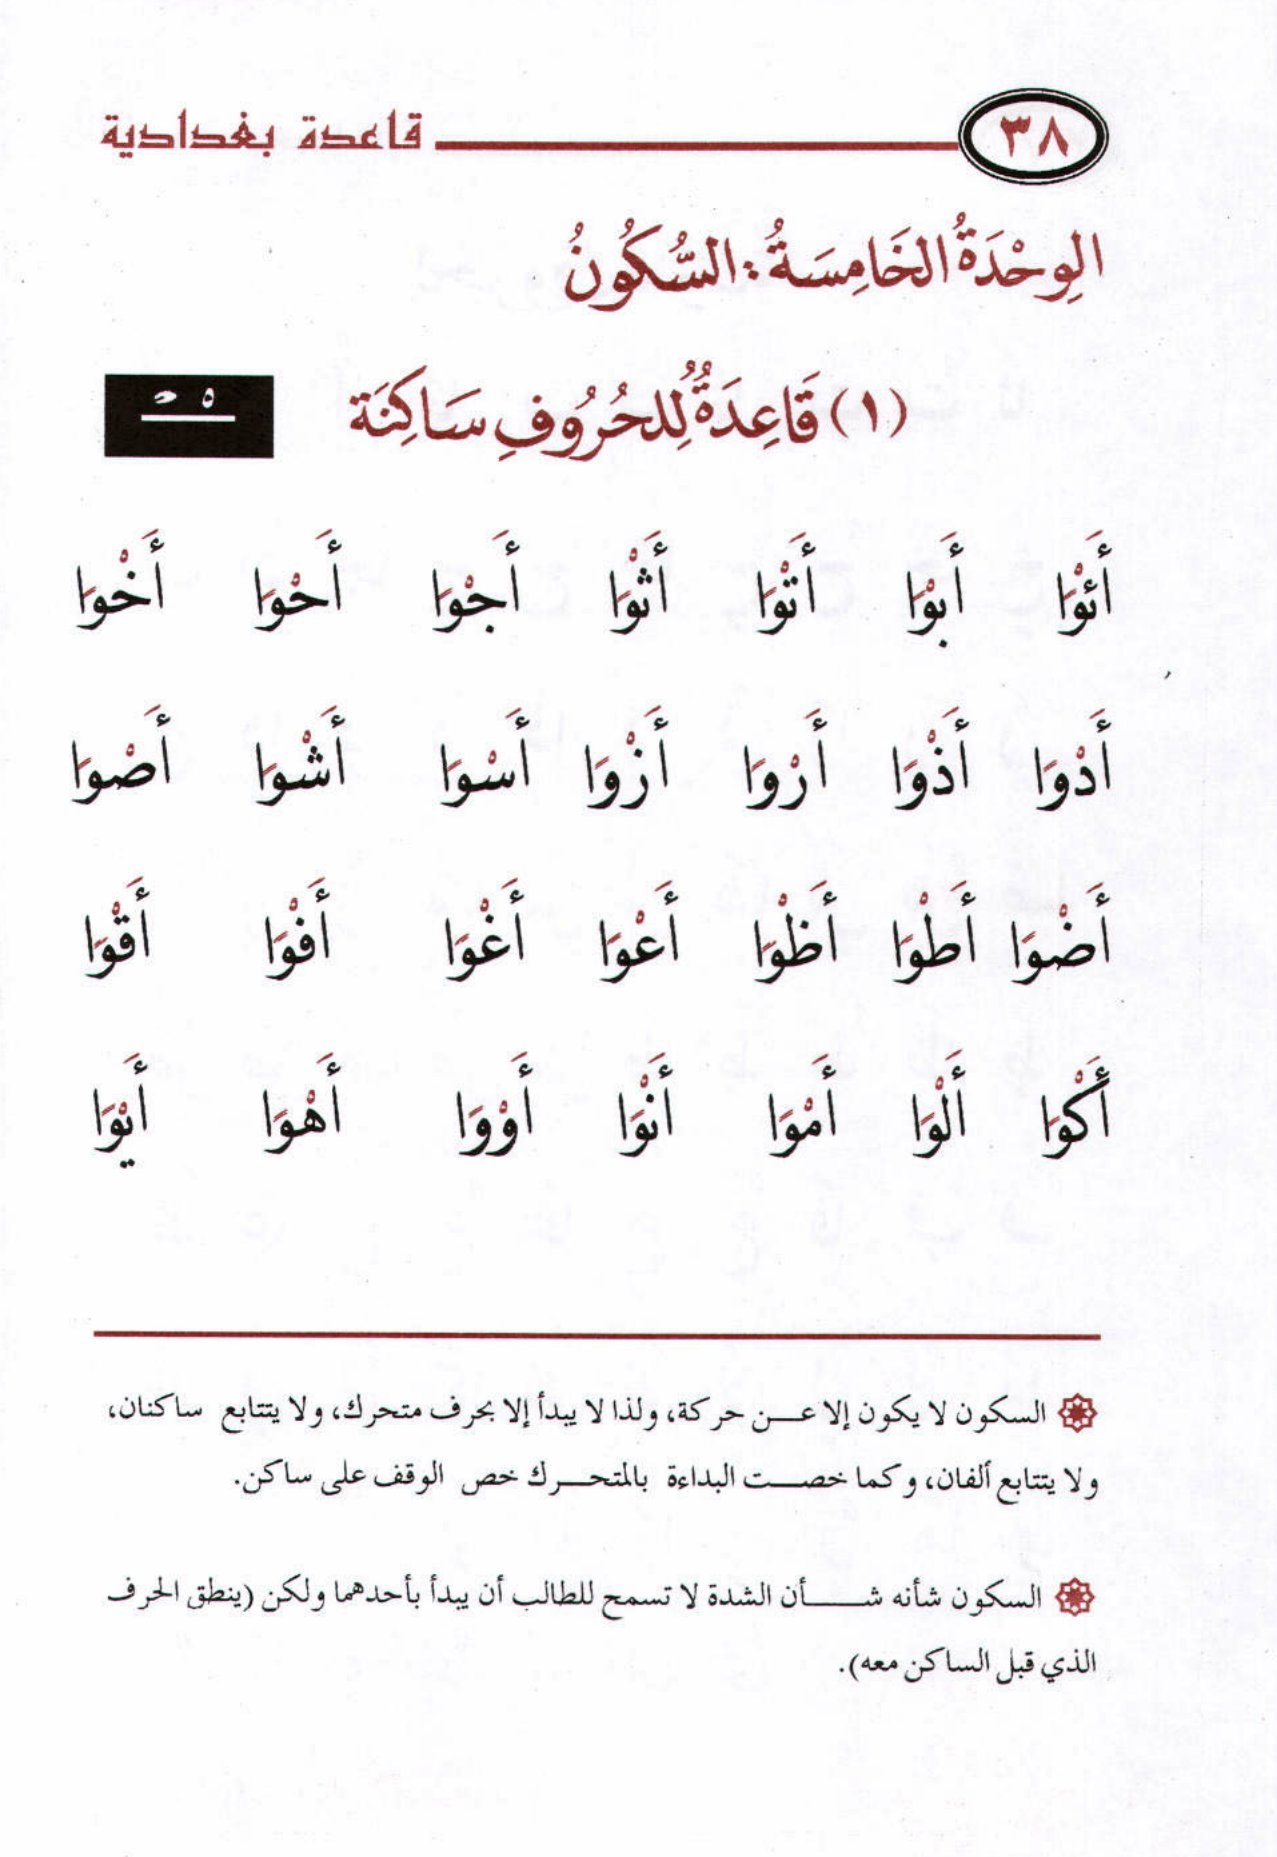 ٣٨ قاعدة بغدادية
الوِحْدَةُ الخَامِسَةُ : السُّكُونُ
(١) قَاعِدَةٌ لِلحُرُوفِ سَاكِنَة
أَئْوَا أَبْوَا أَتْوَا أَثْوَا أَجْوَا أَحْوَا أَخْوَا
أَدْوَا أَذْوَا أَرْوَا أَزْوَا أَسْوَا أَشْوَا أَصْوَا
أَضْوَا أَطْوَا أَظْوَا أَعْوَا أَغْوَا أَفْوَا أَقْوَا
أَكْوَا أَلْوَا أَمْوَا أَنْوَا أَوْوَا أَهْوَا أَيْوَا
السكون لا يكون إلا عن حركة، ولذا لا يبدأ إلا بحرف متحرك، ولا يتتابع ساكنان،
ولا يتتابع ألفان، وكما خصت البداءة بالمتحرك خص الوقف على ساكن.
السكون شأنه شأن الشدة لا تسمح للطالب أن يبدأ بأحدهما ولكن (ينطق الحرف
الذي قبل الساكن معه).